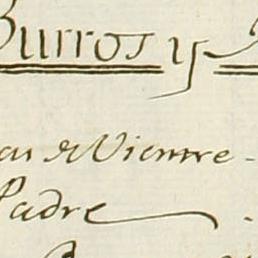 Burros y
as de Vientre
Padre